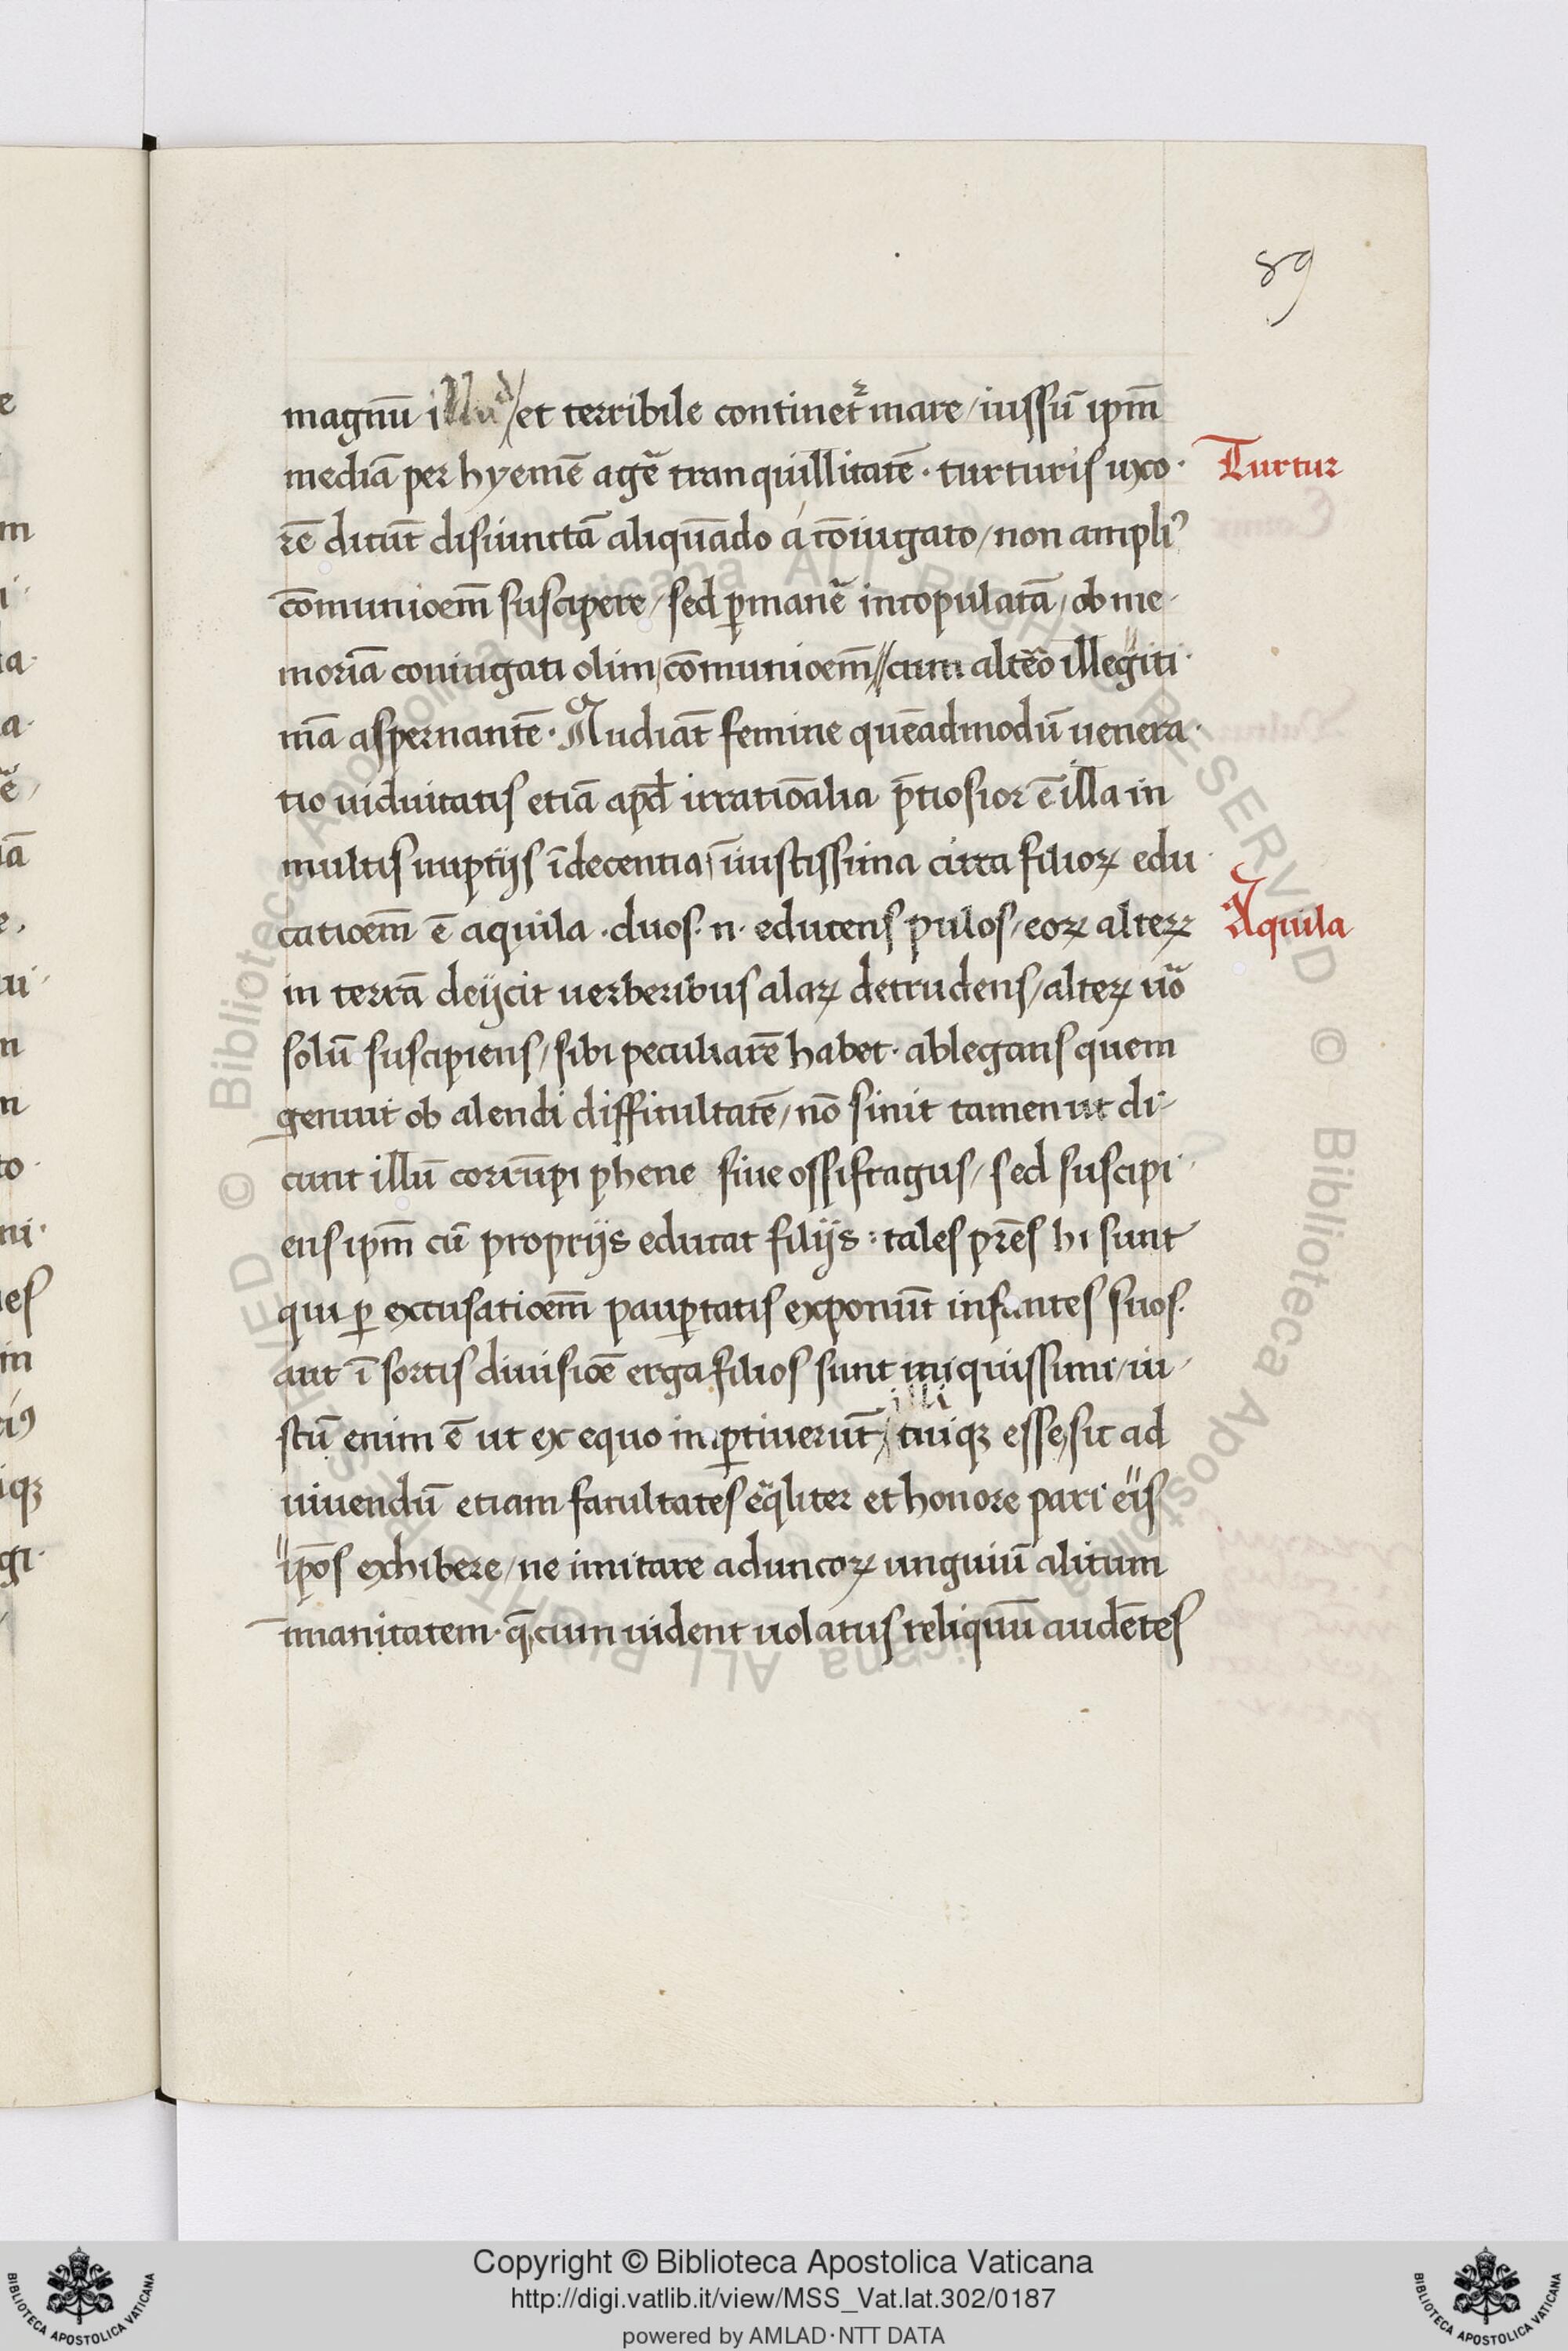 89
magnū illud/et terribile continet᷑ mare/iussū ipm̄
mediā per hyemē agē tranquillitatē· turturis uxo·
Turtur
rē dicūt disiunctā aliquādo á cōiugato/non ampliꝰ
cōmunioem̄ suscipere/sed ꝑmanē incopulatā/ob me-
moriā coniugati olim/cōmunioem̄//cum alteō illegiti·
mā aspernantē· Audiāt femine quēadmodū uenera·
tio uiduitatis etiā apd̄ irratiōalia p̄tiosior ē illa in
multis nuptijs īdecentia/īiustissima circa filioꝝ edu·
catioem̄ ē aquila ·duos·n· educens pulos/eoꝝ alteꝝ
Aquila
in terrā deijcit uerberibus alaꝝ detrudens/alteꝝ uō
solū suscipiens/sibi peculiarē habet· ablegans quem
genuit ob alendi difficultatē/nō sinit tamen ut di-
cunt illū corrūpi phene siue ossifragus/sed suscipi·
ens ipm̄ cū proprijs educat filijs: tales pr̄es hi sunt
qui ꝑ excusatioem̄ pauꝑtatis exponūt infantes suos·
aut ī sortis diuisiōe erga filios sunt iniquissimi/iu-
illi
stū enim ē ut ex equo imꝑtiuerūt/cuiqꝫ esse/sic ad
uiuendū etiam facultates eq̄liter et honore pari eis
ip̄os exhibere/ne imitare aduncoꝝ unguiū alitum
īmanitatem· q̄ cum uident uolatus reliquū audētes
© Biblioteca Apostolica Vaticana ALL RIGHTS RESERVED
Copyright © Biblioteca Apostolica Vaticana
http://digi.vatlib.it/view/MSS_Vat.lat.302/0187
powered by AMLAD·NTT DATA
BIBLIOTECA APOSTOLICA VATICANA
BIBLIOTECA APOSTOLICA VATICANA